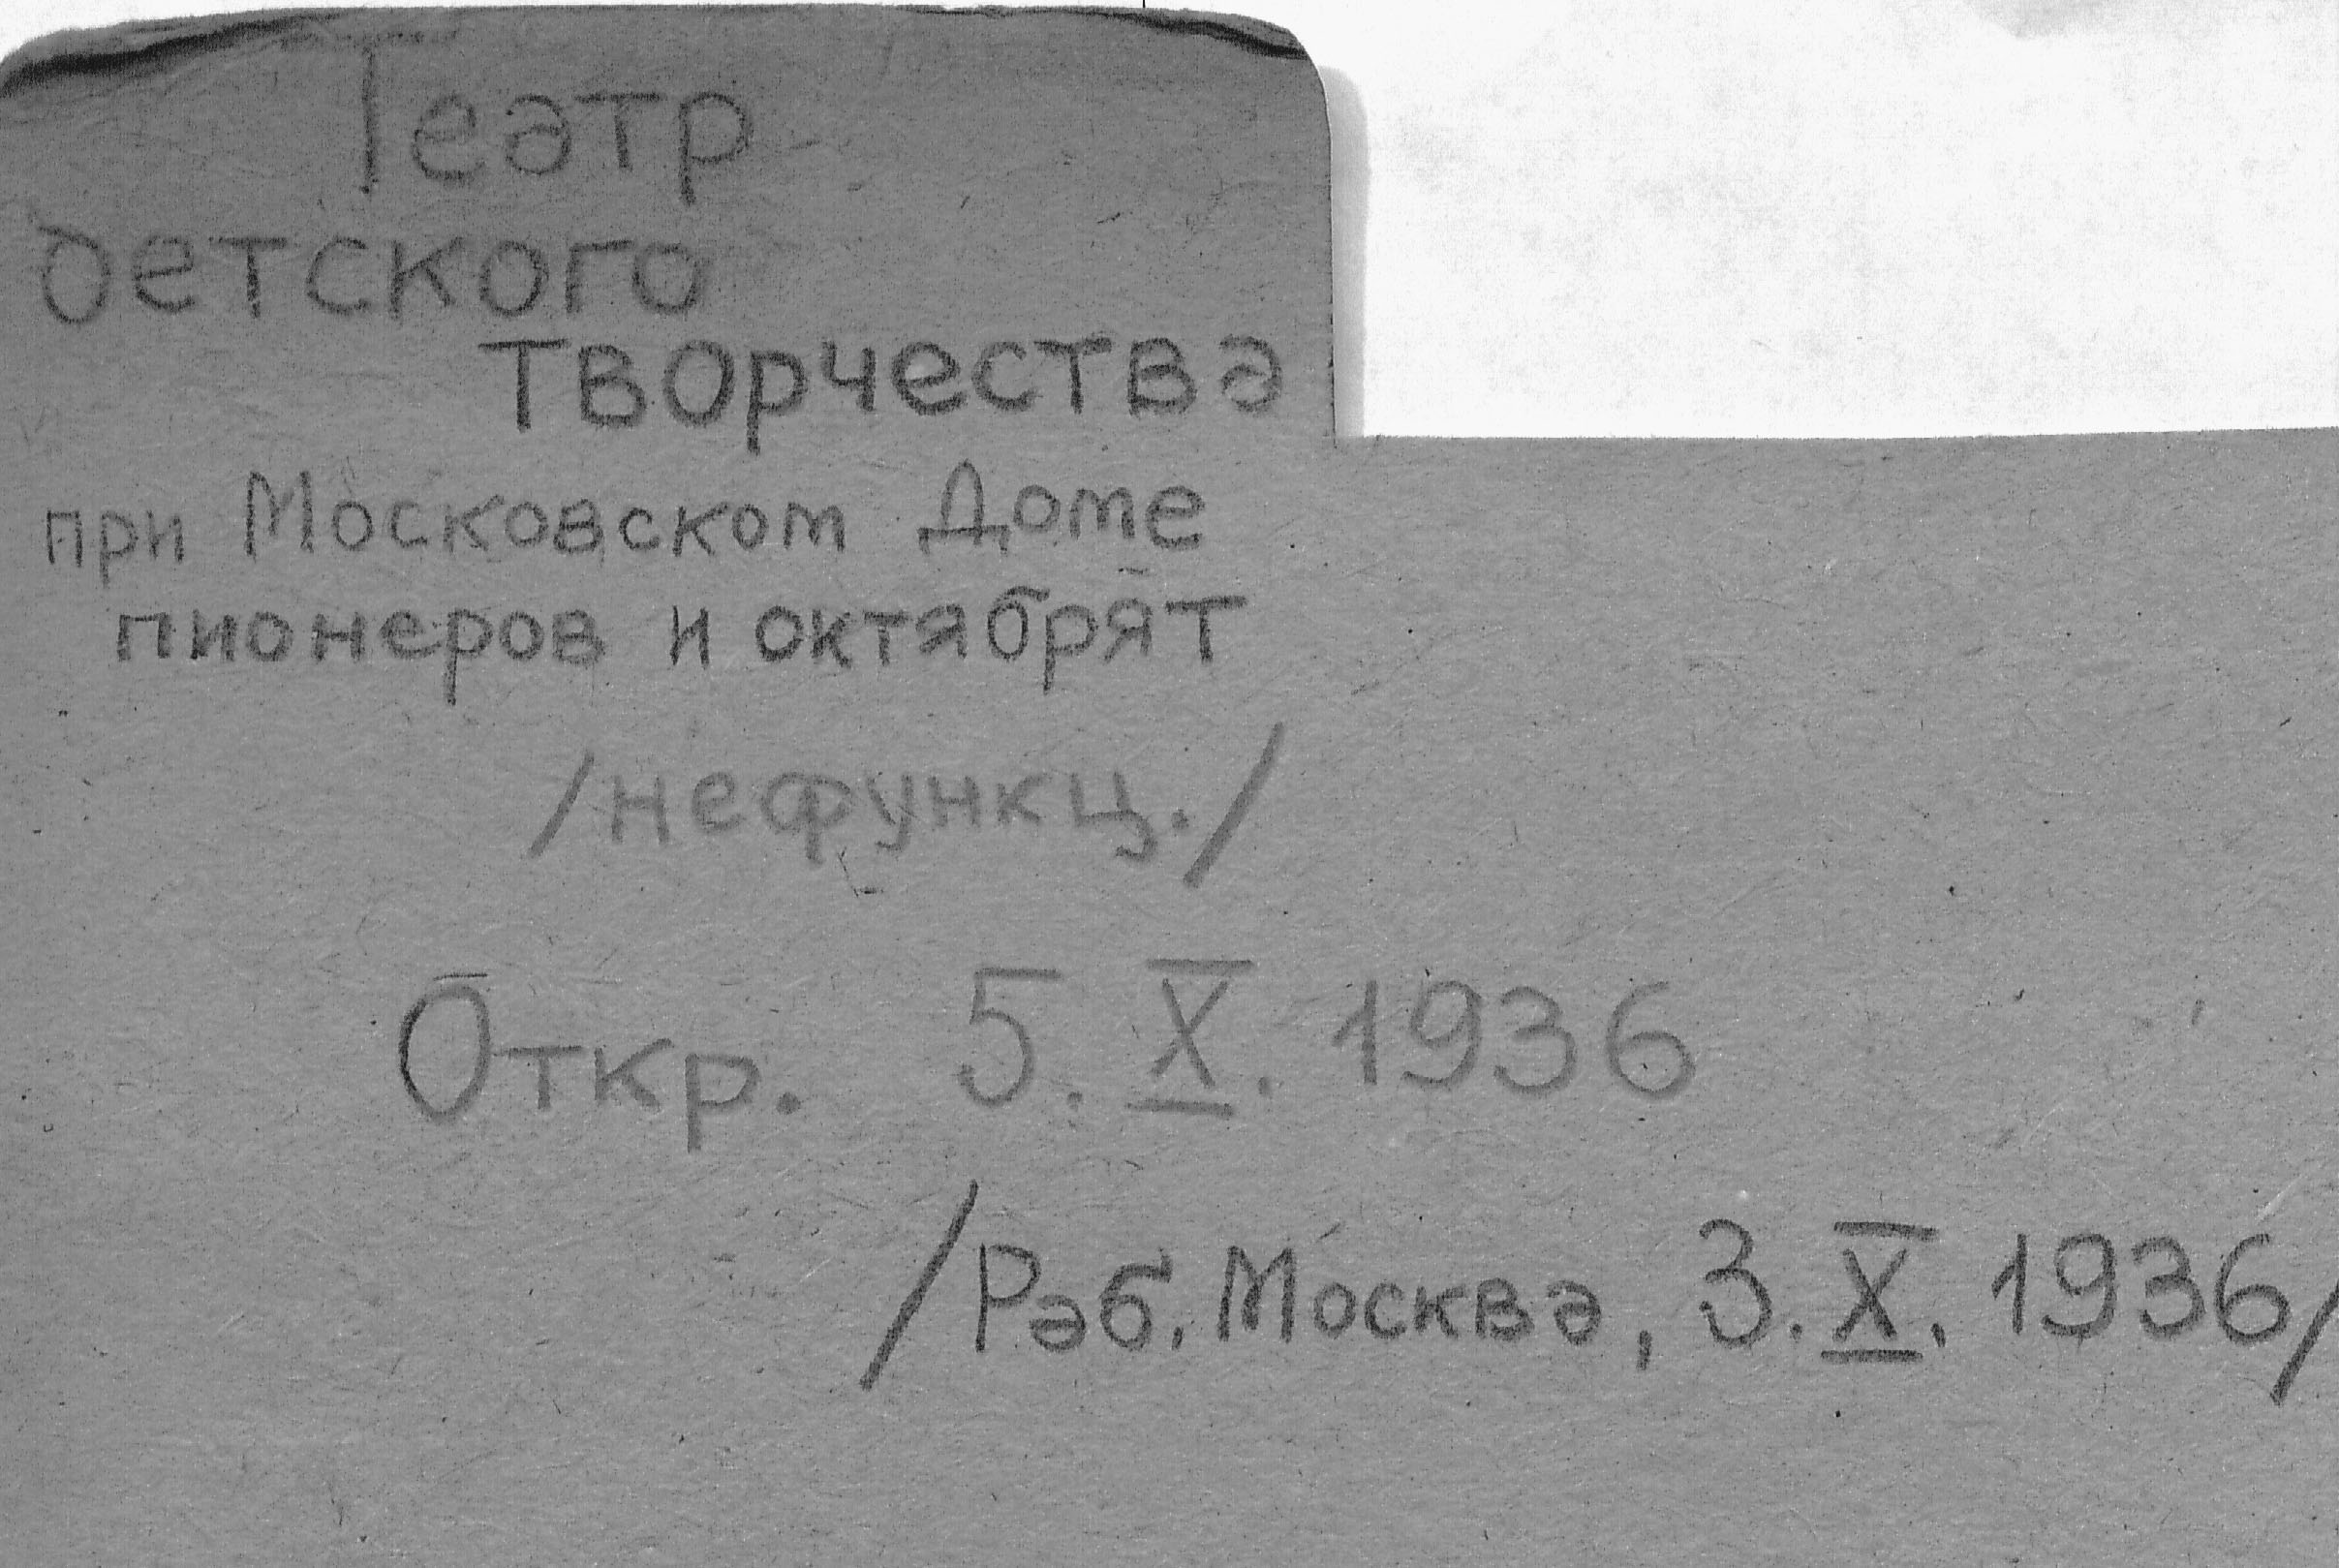 Театр
детского
творчества
при Московском Доме
пионеров и октябрят
/нефункц./
Откр. 5. X. 1936
/Раб. Москва, 3. X. 1936/